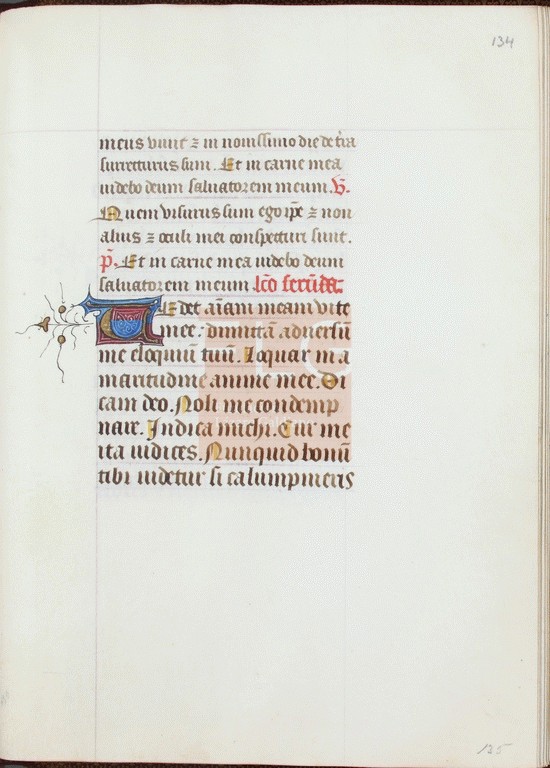 134
meus vivit ⁊ in novissimo die de t̃ra
surrecturus sum. Et in carne mea
videbo deum salvatorem meum. V̄.
Quem visurus sum ego ip̃e ⁊ non
alius ⁊ oculi mei conspecturi sunt.
p̃. Et in carne mea videbo deum
salvatorem meum. lc̃o secũda.
Tedet aĩam meam vite
mee: dimittã adversũ
me eloquiũ tuũ. Loquar in a
maritudine anime mee. Di
cam deo. Noli me condemp
nare. Indica michi. Cur me
ita iudices. Nunquid bonũ
tibi videtur si calumpnieris
135